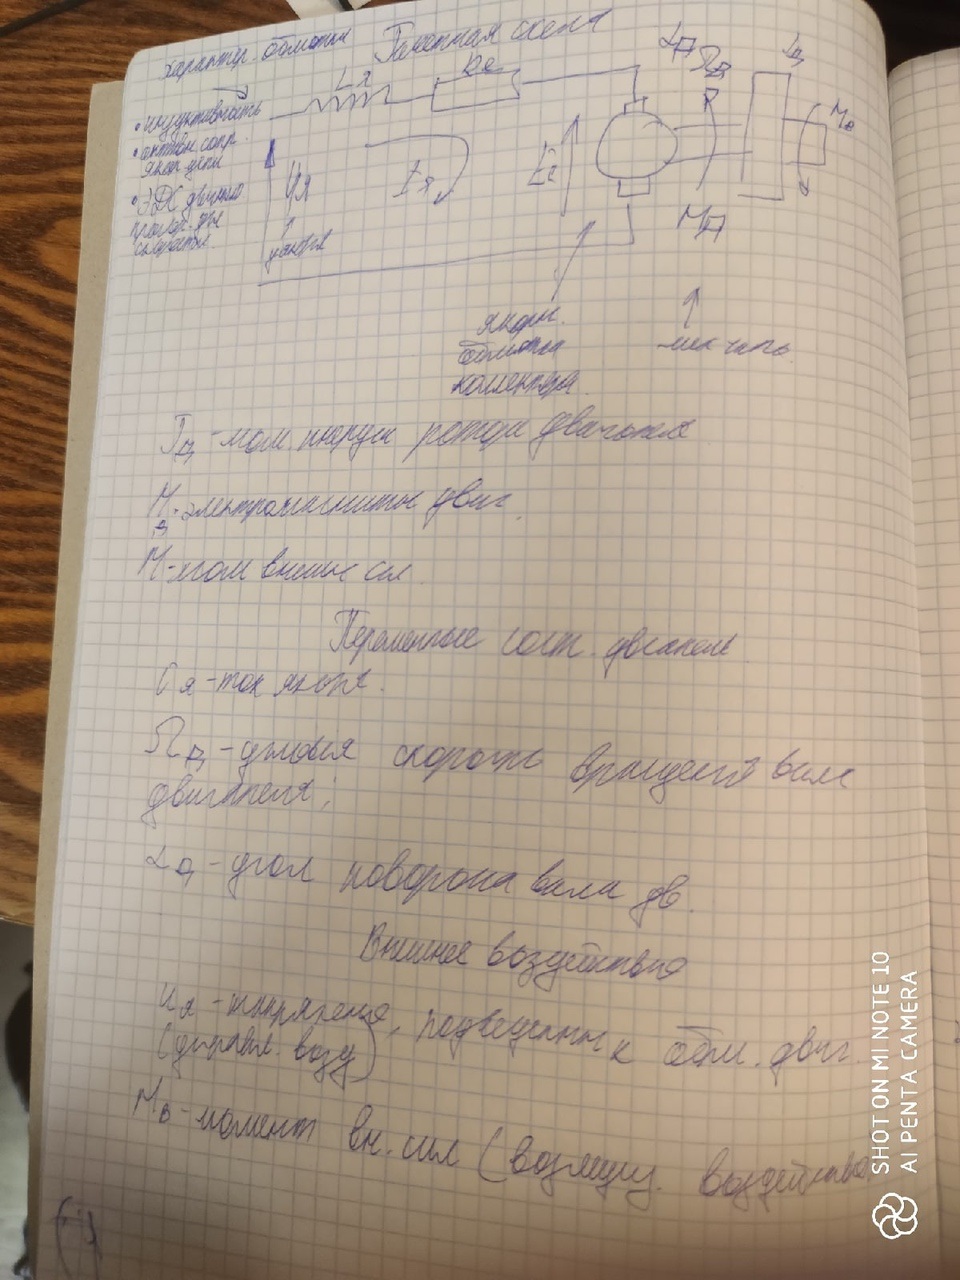 характер. обмотки Расчетная схема
Lя Rя αд Ωд Jд
• индуктивность
• активн. сопр.
якор. цепи
• ЭДС двигат.
Uя Iя Eя Mд Mв
якорн.
обмотка
коллектора.
мех часть
Jд - мом. инерции ротора двигателя
Mд - электромагнитн двиг.
M - мом внешн сил
Переменные сост. двигателя
iя - ток якоря.
Ωд - угловая скорость вращения вала
двигателя;
αд - угол поворота вала дв.
Внешнее воздействие
Uя - напряжение, подведенн к обм. двиг.
(управл. возд)
Mв - момент вн. сил (возмущ. воздействие
SHOT ON MI NOTE 10
AI PENTA CAMERA